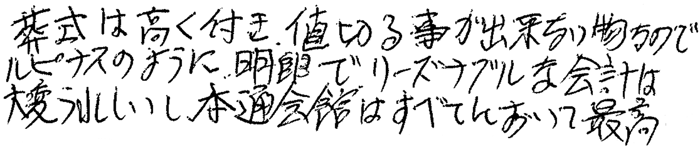 葬式は高く付き、値切る事が出来ない物なので
ルピナスのように明朗でリーズナブルな会計は
大変うれしいし、本通会館はすべてにおいて最高